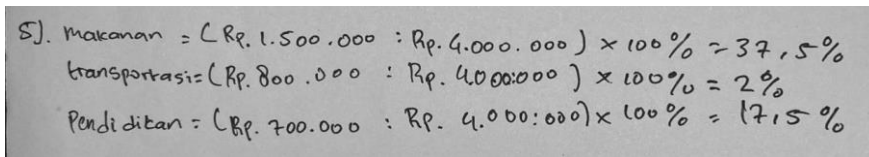 5). makanan = (Rp. 1.500.000 : Rp. 4.000.000) × 100% = 37,5%
transportasi = (Rp. 800.000 : Rp. 4.000.000) × 100% = 2%
Pendidikan = (Rp. 700.000 : Rp. 4.000.000) × 100% = 17,5%